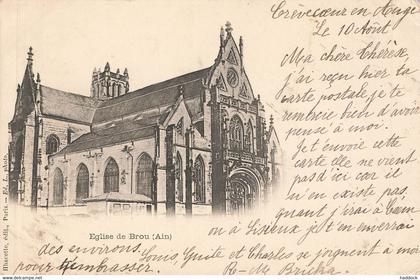 Crèvecœur en Auge
le 10 Août
Ma chère Thérèse,
j'ai reçu hier ta
carte postale je te
remercie bien d'avoir
pensé à moi.
Je t'envoie cette
carte elle ne vient
pas d'ici car il
n'en existe pas.
quant j'irai à Caen
ou à Lisieux je t'en enverrai
des environs. Louis, Guite et Charles se joignent à moi
pour t'embrasser.
Eglise de Brou (Ain)
édit., Paris